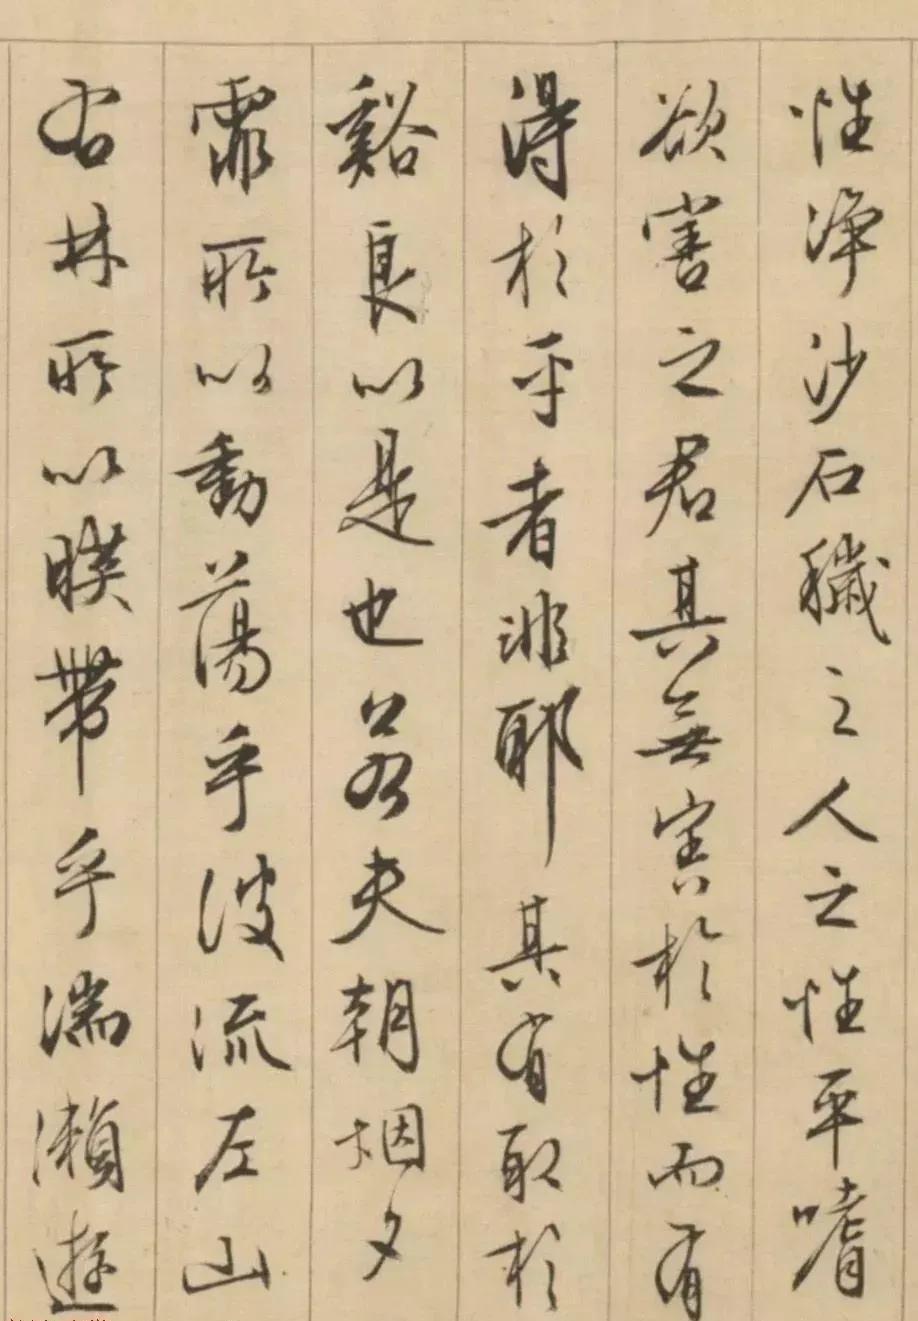 性淨沙石穢之人之性平嗜
欲害之君其無害於性而有
得於平者非耶其有取於
谿良以是也若夫朝烟夕
霏所以動蕩乎波流左山
右林所以暎帶乎湍瀨遊